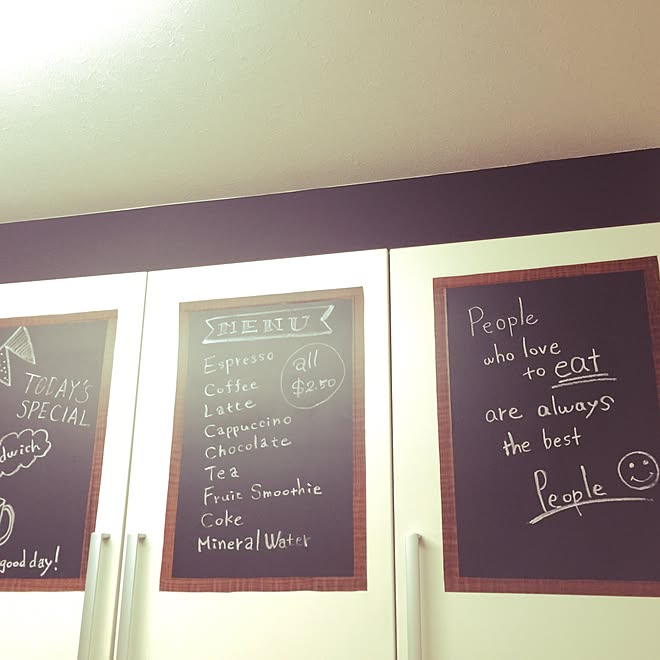 TODAY'S
SPECIAL
good day!
MENU
Espresso
Coffee
Latte
Cappuccino
Chocolate
Tea
Fruit Smoothie
Coke
Mineral Water
all
$2.50
People
who love
to eat
are always
the best
People